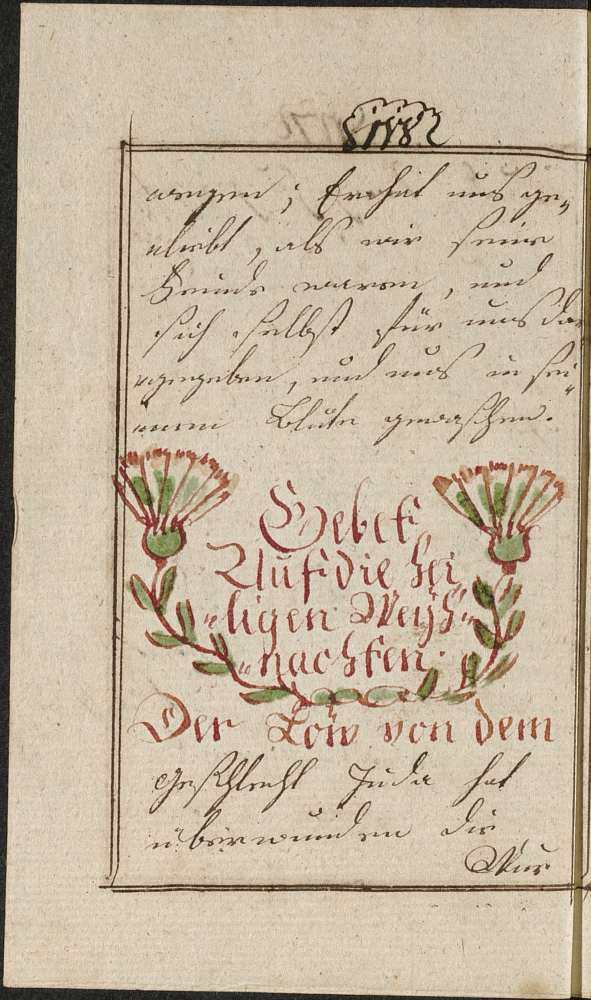 wegen; Er hat uns ge„
„liebt, als wir seine
Feinde waren, und
sich selbst für uns dar
„gegeben, und uns in sei„
„nem Blute gewaschen.
Gebet,
Auf die hei„
„ligen Weyh„
„nachten.
Der Löw von dem
Geschlecht Juda hat
überwunden die
Wur